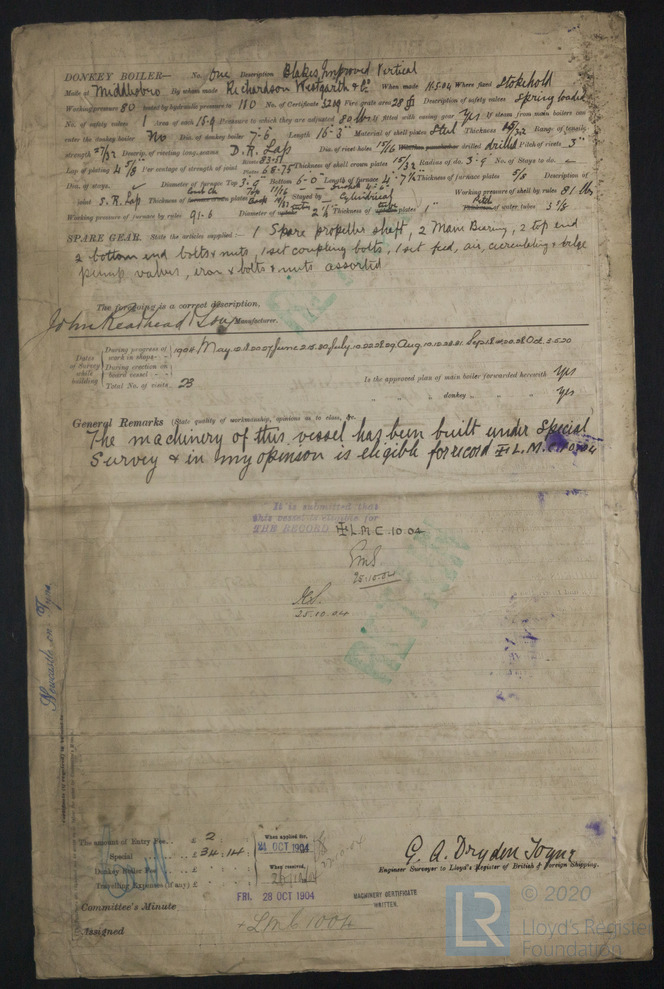 DONKEY BOILER— No. One Description Blakes Improved Vertical
Made at Middlesbro By whom made Richardson Westgarth & Co When made 11.5.04 Where fixed Stokehold
Working pressure 80 tested by hydraulic pressure to 160 No. of Certificate 3219 Fire grate area 28 Description of safety valves Spring loaded
No. of safety valves 1 Area of each 15.9 Pressure to which they are adjusted 80 lbs If fitted with easing gear Yes If steam from main boilers can
enter the donkey boiler No Dia. of donkey boiler 7-6 Length 16-3" Material of shell plates Steel Thickness 19/32 Range of tensile
strength 27/32 Descrip. of riveting long. seams D. R. Lap Dia. of rivet holes drilled Pitch of rivets 3"
Lap of plating 4 5/8 Per centage of strength of joint Rivets 83.51 Plates 68.75 Thickness of shell crown plates 15/32 Radius of do. 3-9 No. of Stays to do.
Dia. of stays. Diameter of furnace Top 3-9 Bottom 6-0 Length of furnace 4-7½ Thickness of furnace plates 5/8 Description of
joint S. R. Lap Thickness of plates Stayed by Cylindrical Working pressure of shell by rules 81 lbs
Working pressure of furnace by rules 91.6 Diameter of 2¼ Thickness of plates 1" Pitch of water tubes 3 5/8
SPARE GEAR. State the articles supplied:— 1 Spare propeller shaft, 2 Main Bearing, 2 top end
2 bottom end bolts & nuts, 1 set coupling bolts, 1 set feed, air, circulating & bilge
pump valves, iron & bolts & nuts assorted
The foregoing is a correct description,
John Readhead & Sons Manufacturer.
Dates of Survey while building
During progress of work in shops - - 1904 May
During erection on board vessel - - -
Total No. of visits 23
Is the approved plan of main boiler forwarded herewith Yes
" " " donkey " " " Yes
General Remarks (State quality of workmanship, opinions as to class, &c.
The machinery of this vessel has been built under Special
Survey & in my opinion is eligible for record L.M.C. 10.04
It is submitted that
this vessel is eligible for
THE RECORD L.M.C. 10.04
25.10.04
25.10.04
Newcastle on Tyne
The amount of Entry Fee. . £ 2
Special . . . . £ 34 . 14
Donkey Boiler Fee . . . £
Travelling Expenses (if any) £
When applied for,
24 OCT 1904
When received,
G. A. Dryden Toyne
Engineer Surveyor to Lloyd's Register of British & Foreign Shipping.
Committee's Minute
FRI. 28 OCT 1904
MACHINERY CERTIFICATE
WRITTEN.
Assigned + LMC 10 04
LR
© 2020
Lloyd's Register
Foundation